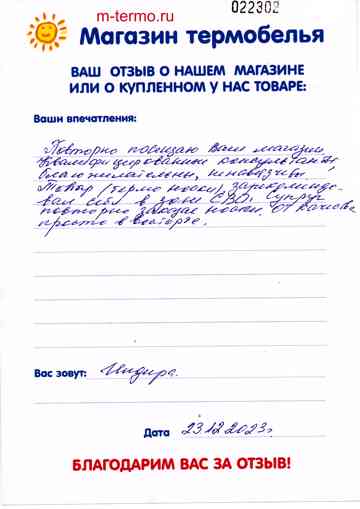 m-termo.ru
022302
Магазин термобелья
ВАШ ОТЗЫВ О НАШЕМ МАГАЗИНЕ
ИЛИ О КУПЛЕННОМ У НАС ТОВАРЕ:
Ваши впечатления:
Повторно посещаю Ваш магазин
Квалифицированные консультанты
благожелательны, ненавязчивы
Товар (термо носки) зарекомендо-
вал себя в зоне СВО. Супруг
повторно заказал носки. От качества
просто в восторге.
Вас зовут: Индира.
Дата 23.12.2023г.
БЛАГОДАРИМ ВАС ЗА ОТЗЫВ!